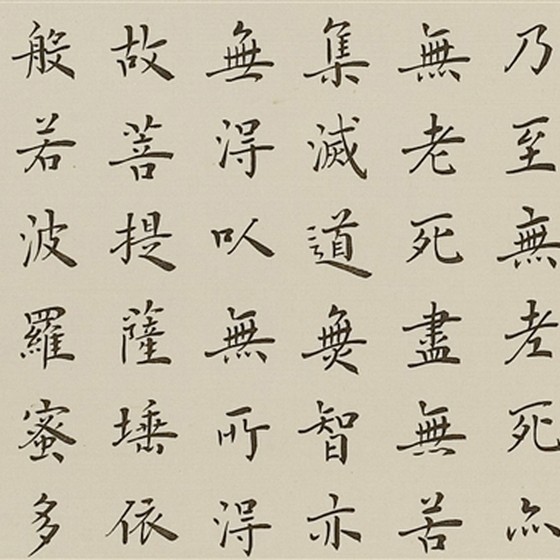 乃至無老死亦
無老死盡無苦
集滅道無智亦
無得以無所得
故菩提薩埵依
般若波羅蜜多